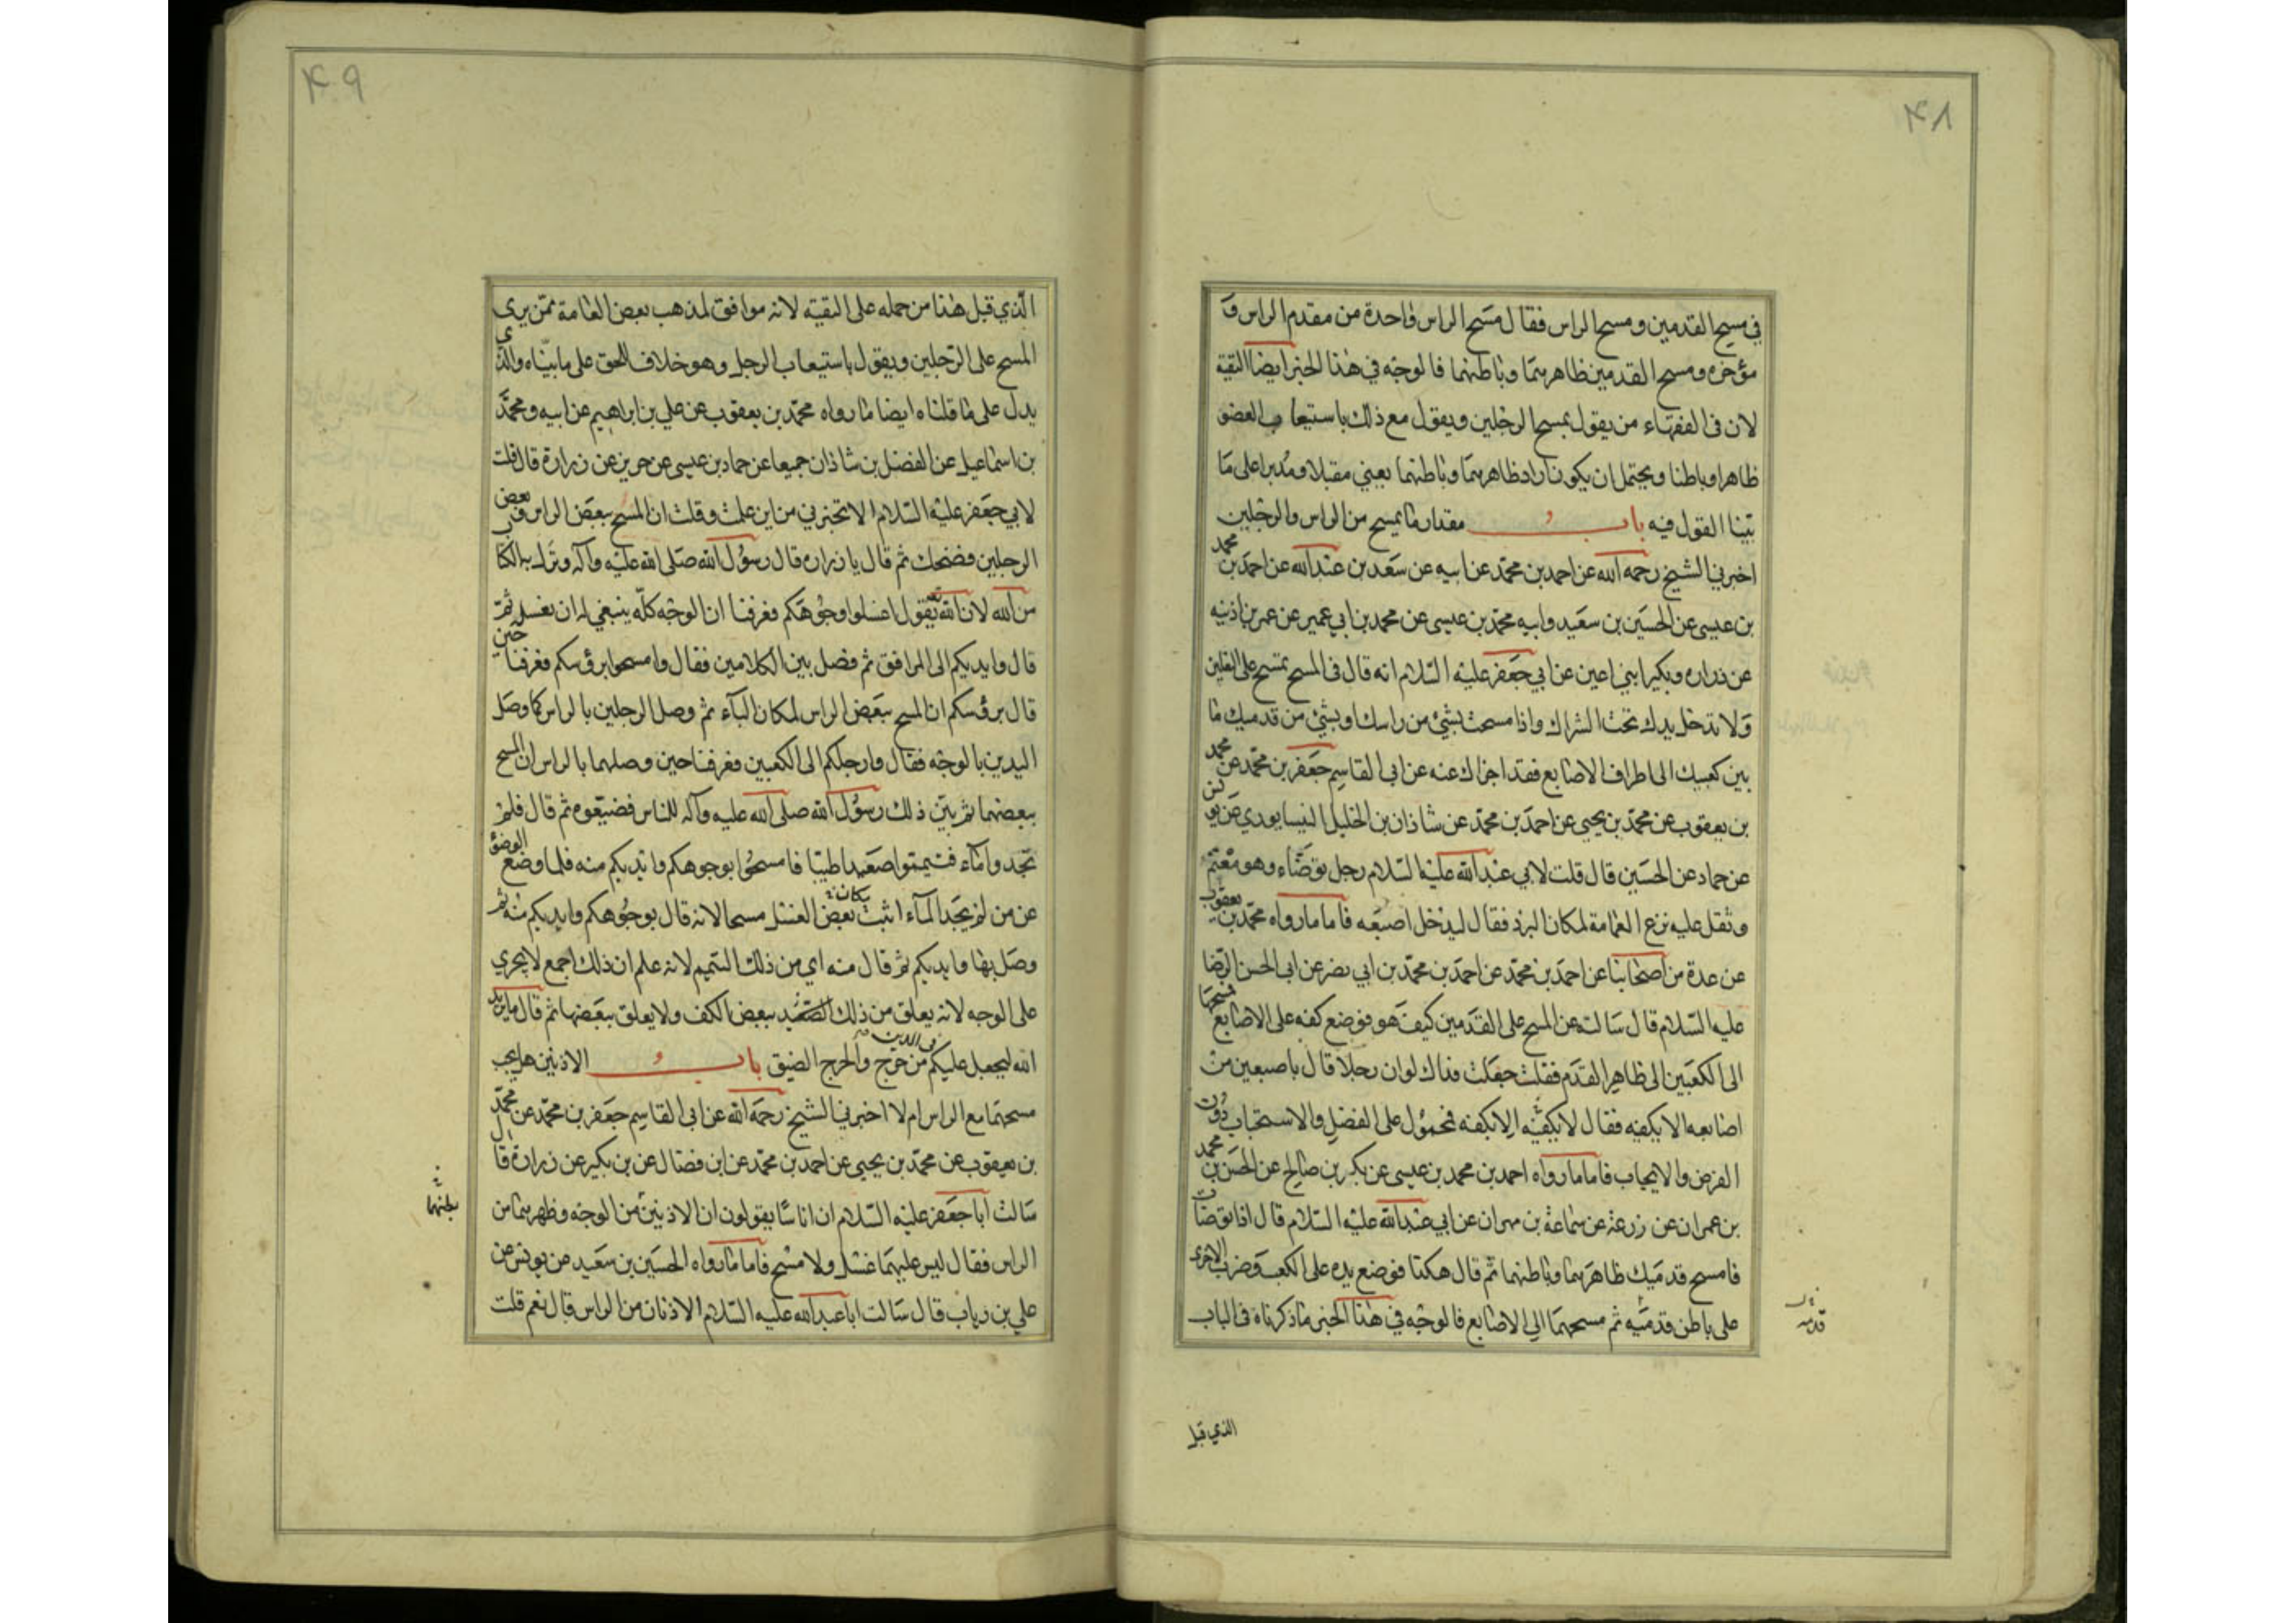 ۴۸
في مسح القدمين ومسح الراس فقال مسح الراس واحدة من مقدم الراس و
مؤخره ومسح القدمين ظاهرهما وباطنهما فالوجه في هذا الخبر ايضا التقية
لان فى الفقهاء من يقول بمسح الرجلين ويقول مع ذلك باستيعاب العضو
ظاهرا وباطنا ويحتمل ان يكون اراد ظاهرهما وباطنهما يعني مقبلا ومدبرا على ما
بينا القول فيه باب مقدار ما يمسح من الراس والرجلين
اخبرني الشيخ رحمه الله عن احمد بن محمد عن ابيه عن سعد بن عبد الله عن احمد بن محمد
بن عيسى عن الحسين بن سعيد وابيه محمد بن عيسى عن محمد بن ابي عمير عن عمر بن اذينه
عن زراره وبكير ابني اعين عن ابي جعفر عليه السلام انه قال فى المسح تمسح على النعلين
ولا تدخل يدك تحت الشراك واذا مسحت بشئ من راسك او بشئ من قدميك ما
بين كعبيك الى اطراف الاصابع فقد اجزاك عنه عن ابى القاسم جعفر بن محمد عن محمد
بن يعقوب عن محمد بن يحيى عن احمد بن محمد عن شاذان بن الخليل النيسابوري عن يونس
عن حماد عن الحسين قال قلت لابي عبد الله عليه السلام رجل توضاء وهو معتم
وثقل عليه نزع العمامة لمكان البرد فقال ليدخل اصبعه فاما ما رواه محمد بن يعقوب
عن عدة من اصحابنا عن احمد بن محمد عن احمد بن محمد بن ابي نصر عن ابى الحسن الرضا
عليه السلام قال سالته عن المسح على القدمين كيف هو فوضع كفه على الاصابع فمسحها
الى الكعبين الى ظاهر القدم فقلت جعلت فداك لو ان رجلا قال باصبعين من
اصابعه الا يكفيه فقال لا يكفيه الا بكفه فمحمول على الفضل والاستحباب دون
الفرض والايجاب فاما ما رواه احمد بن محمد بن عيسى عن بكر بن صالح عن الحسن بن محمد
بن عمران عن زرعة عن سماعة بن مهران عن ابي عبد الله عليه السلام قال اذا توضات
فامسح قدميك ظاهرهما وباطنهما ثم قال هكذا فوضع يده على الكعب وضرب الاخرى
على باطن قدميه ثم مسحهما الى الاصابع فالوجه في هذا الخبر ما ذكرناه فى الباب
قدمه
الذي قبل
۴۹
الذي قبل هذا من حمله على التقية لانه موافق لمذهب بعض العامة ممن يرى
المسح على الرجلين ويقول باستيعاب الرجل وهو خلاف الحق على ما بيناه والذي
يدل على ما قلناه ايضا ما رواه محمد بن يعقوب عن علي بن ابراهيم عن ابيه ومحمد
بن اسماعيل عن الفضل بن شاذان جميعا عن حماد بن عيسى عن حريز عن زرارة قال قلت
لابي جعفر عليه السلام الا تخبرني من اين علمت وقلت ان المسح ببعض الراس وبعض
الرجلين فضحك ثم قال يا زراره قال رسول الله صلى الله عليه وآله ونزل به الكتاب
من الله لان الله تعالى يقول اغسلوا وجوهكم فعرفنا ان الوجه كله ينبغي له ان يغسل ثم
قال وايديكم الى المرافق ثم فصل بين الكلامين فقال وامسحوا برؤسكم فعرفنا حين
قال برؤسكم ان المسح ببعض الراس لمكان الباء ثم وصل الرجلين بالراس كما وصل
اليدين بالوجه فقال وارجلكم الى الكعبين فعرفنا حين وصلهما بالراس ان المسح
ببعضهما ثم بين ذلك رسول الله صلى الله عليه وآله للناس فضيعوه ثم قال فلم
تجدوا ماء فتيمموا صعيدا طيبا فامسحوا بوجوهكم وايديكم منه فلما وضع الوضؤ
عن من لم يجد الماء اثبت مكان بعض الغسل مسحا لانه قال بوجوهكم وايديكم منه ثم
وصل بها وايديكم ثم قال منه اي من ذلك التيمم لانه علم ان ذلك اجمع لا يجري
على الوجه لانه يعلق من ذلك الصعيد ببعض الكف ولا يعلق ببعضها ثم قال ما يريد
الله ليجعل عليكم فى الدين من حرج والحرج الضيق باب الاذنين هل يجب
مسحهما مع الراس ام لا اخبرني الشيخ رحمه الله عن ابى القاسم جعفر بن محمد عن محمد
بن يعقوب عن محمد بن يحيى عن احمد بن محمد عن ابن فضال عن بن بكير عن زرارة قال
سالت ابا جعفر عليه السلام ان اناسا يقولون ان الاذنين من الوجه وظهرهما من
الراس فقال ليس عليهما غسل ولا مسح فاما ما رواه الحسين بن سعيد عن يونس عن
علي بن رباب قال سالت ابا عبد الله عليه السلام الاذنان من الراس قال نعم قلت
بطنهما